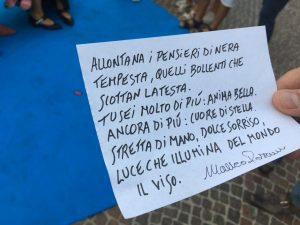 ALLONTANA i PENSIERI DI NERA
TEMPESTA, QUELLI BOLLENTI CHE
SCOTTAN LA TESTA.
TU SEI MOLTO DI PIÚ: ANIMA BELLA.
ANCORA DI PIÚ: CUORE DI STELLA.
STRETTA DI MANO, DOLCE SORRISO,
LUCE CHE ILLUMINA DEL MONDO
IL VISO.
Matteo